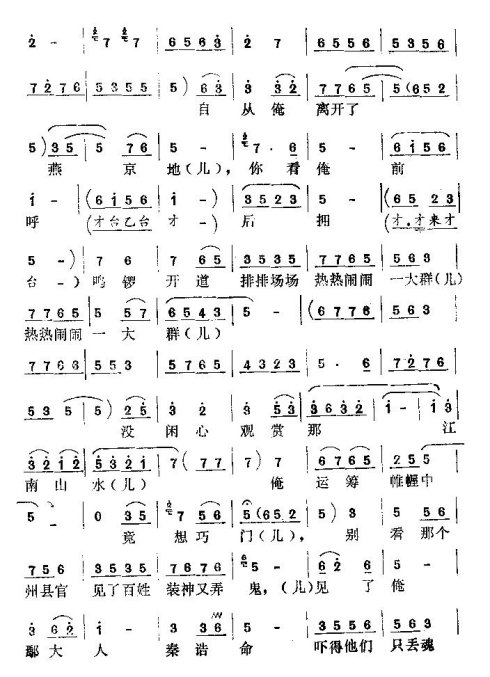 2 - 7 7 6 5 6 3 2 7 6 5 5 6 5 3 5 6
7 2 7 6 5 3 5 5 5) 6 3 3 3 2 7 7 6 5 5 (6 5 2
自从俺 离开了
5) 3 5 5 7 6 5 - 7 · 6 6 1 5 6
燕 京 地(儿),你看俺 前
1 - (6 1 5 6 1 -) 3 5 2 3 (6 5 2 3
呼 (才台乙台 才 -) 后 拥 (才,才来才
5 -) 7 6 7 6 5 3 5 3 5 7 7 6 5 5 6 3
台 -) 鸣锣 开道 排排场场 热热闹闹 一大群(儿)
7 7 6 5 5 5 7 6 5 4 3 5 - 6 7 7 6 5 6 3
热热闹闹 一大 群(儿)
7 7 6 3 5 5 3 5 7 6 5 4 3 2 3 5 · 6 7 2 7 6
5 3 5 5) 5 3 2 3 5 3 3 6 3 2 1 - 1 3
没 闲心 观赏 那 江
2 3 2 1 2 5 3 2 1 7 (7 7 7) 7 6 7 6 5 2 5 5
南山 水(儿) 俺 运筹 帷幄中
5 - 0 3 5 7 5 6 5 (6 5 2 5) 3 5 5 6
竟 想巧 门(儿), 别 看那个
7 5 6 3 5 3 5 7 5 6 5 - 6 2 6 5 -
州县官 见了百姓 装神又弄 鬼,(儿)见了 俺
3 6 2 1 - 3 2 3 5 - 3 5 5 6 5 6 3
鄢大 人 秦诰 命 吓得他们 只丢魂